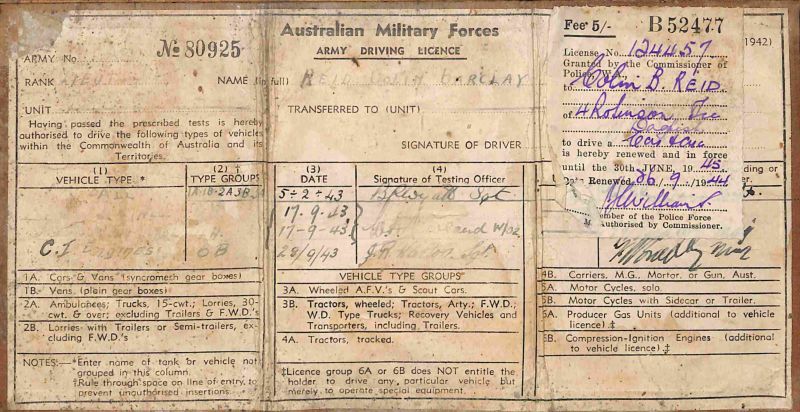 Australian Military Forces
ARMY DRIVING LICENCE
No 80925
ARMY No.
RANK
NAME (in full) REID COLIN BARCLAY
UNIT
TRANSFERRED TO (UNIT)
Having passed the prescribed tests is hereby
authorised to drive the following types of vehicles
within the Commonwealth of Australia and its
Territories.
SIGNATURE OF DRIVER
Fee 5/- B 52477
License No. 124457
Granted by the Commissioner of
Police, W.A.,
to Colin B. REID
of 4 Robinson
to drive a
is hereby renewed and in force
until the 30th JUNE, 1945
Date Renewed 9 / 1944
Member of the Police Force
Authorised by Commissioner.
1942)
(1)
VEHICLE TYPE *
(2) ‡
TYPE GROUPS
(3)
DATE
(4)
Signature of Testing Officer
5-2-43 Sgt
17-9-43
17-9-43
C.I Engines 6B 28/9/43
1A. Cars & Vans (syncrometh gear boxes)
1B. Vans. (plain gear boxes)
2A. Ambulances; Trucks, 15-cwt.; Lorries, 30-
cwt. & over; excluding Trailers & F.W.D's
2B. Lorries with Trailers or Semi-trailers, ex-
cluding F.W.D's
NOTES:—*Enter name of tank or vehicle not
grouped in this column.
‡Rule through space on line of entry, to
prevent unauthorised insertions.
VEHICLE TYPE GROUPS
3A. Wheeled A.F.V.'s & Scout Cars.
3B. Tractors, wheeled; Tractors, Arty.; F.W.D.;
W.D. Type Trucks; Recovery Vehicles and
Transporters, including Trailers.
4A. Tractors, tracked.
‡Licence group 6A or 6B does NOT entitle the
holder to drive any particular vehicle but
merely to operate special equipment.
4B. Carriers, M.G., Mortar, or Gun, Aust.
5A. Motor Cycles, solo.
5B. Motor Cycles with Sidecar or Trailer.
6A. Producer Gas Units (additional to vehicle
licence) ‡
6B. Compression-Ignition Engines (additional
to vehicle licence) ‡